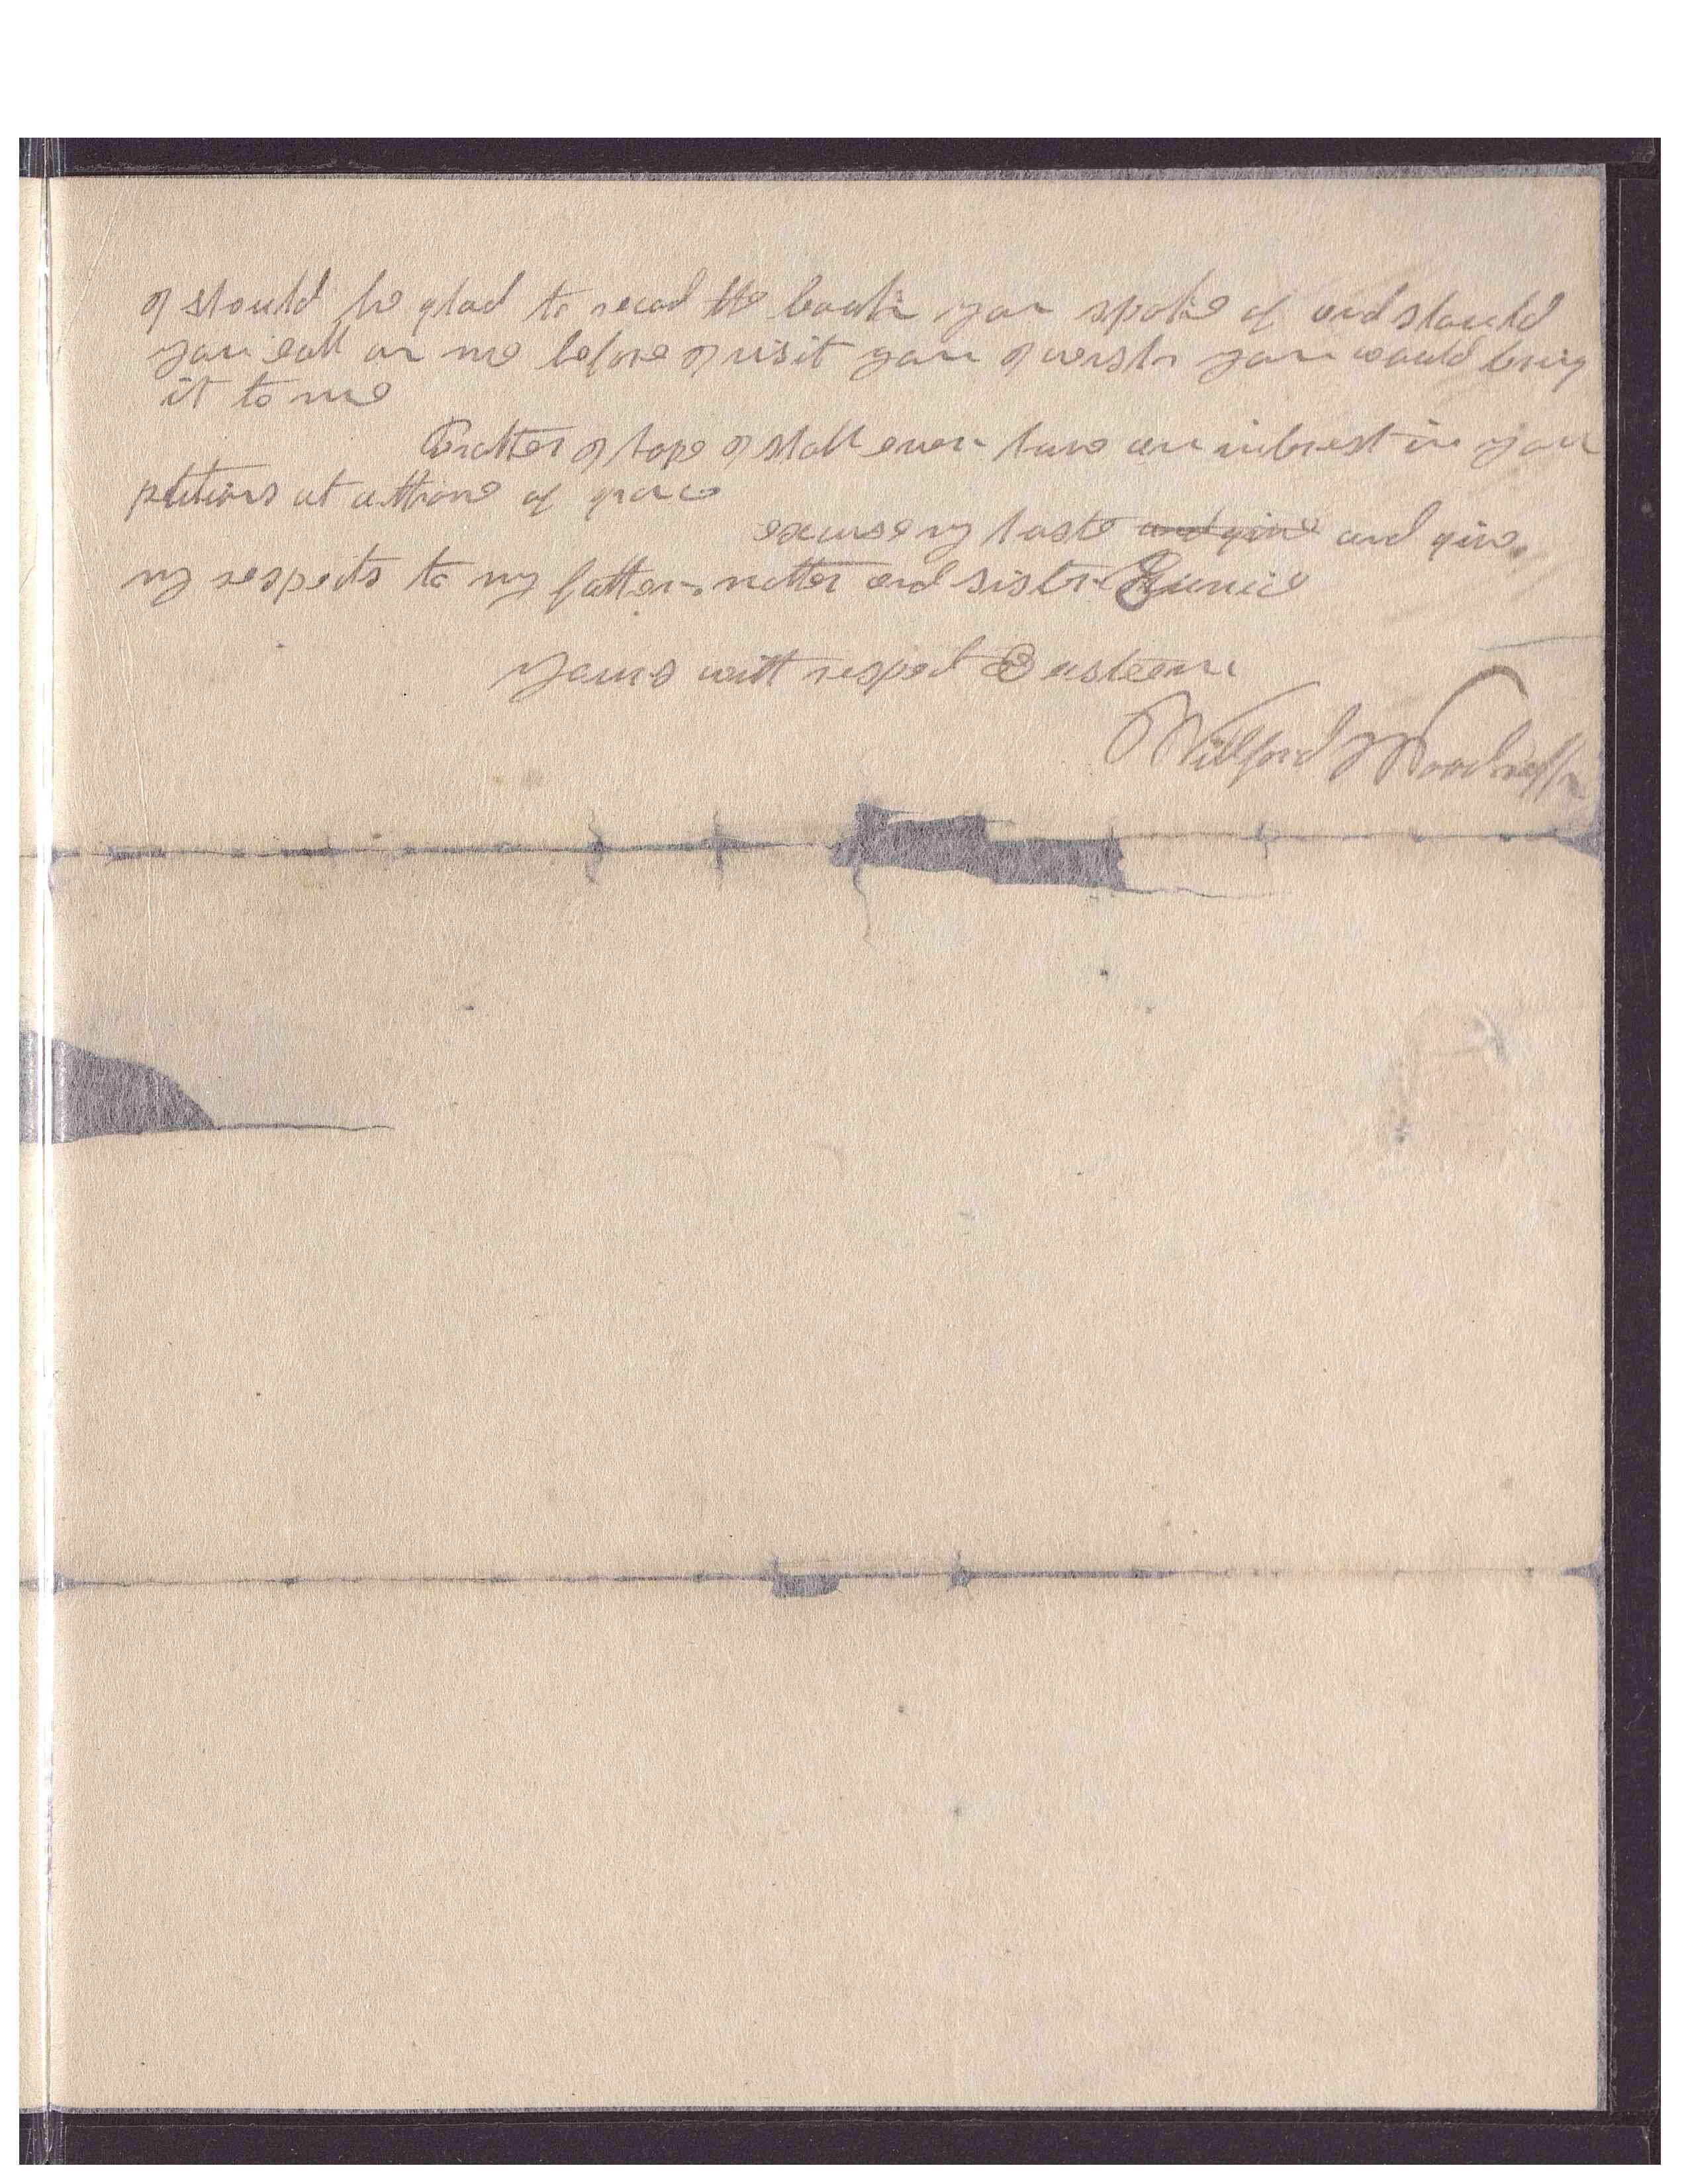 I should be glad to read the book you spoke of and should
you call on me before I visit you I wish you would bring
it to me
Brother I hope I shall ever have an interest in you
petitions at a throne of grace
excuse my haste and give and give
my respects to my father, mother and sister Eunice
yours with respect & esteem
Willford Woodruff